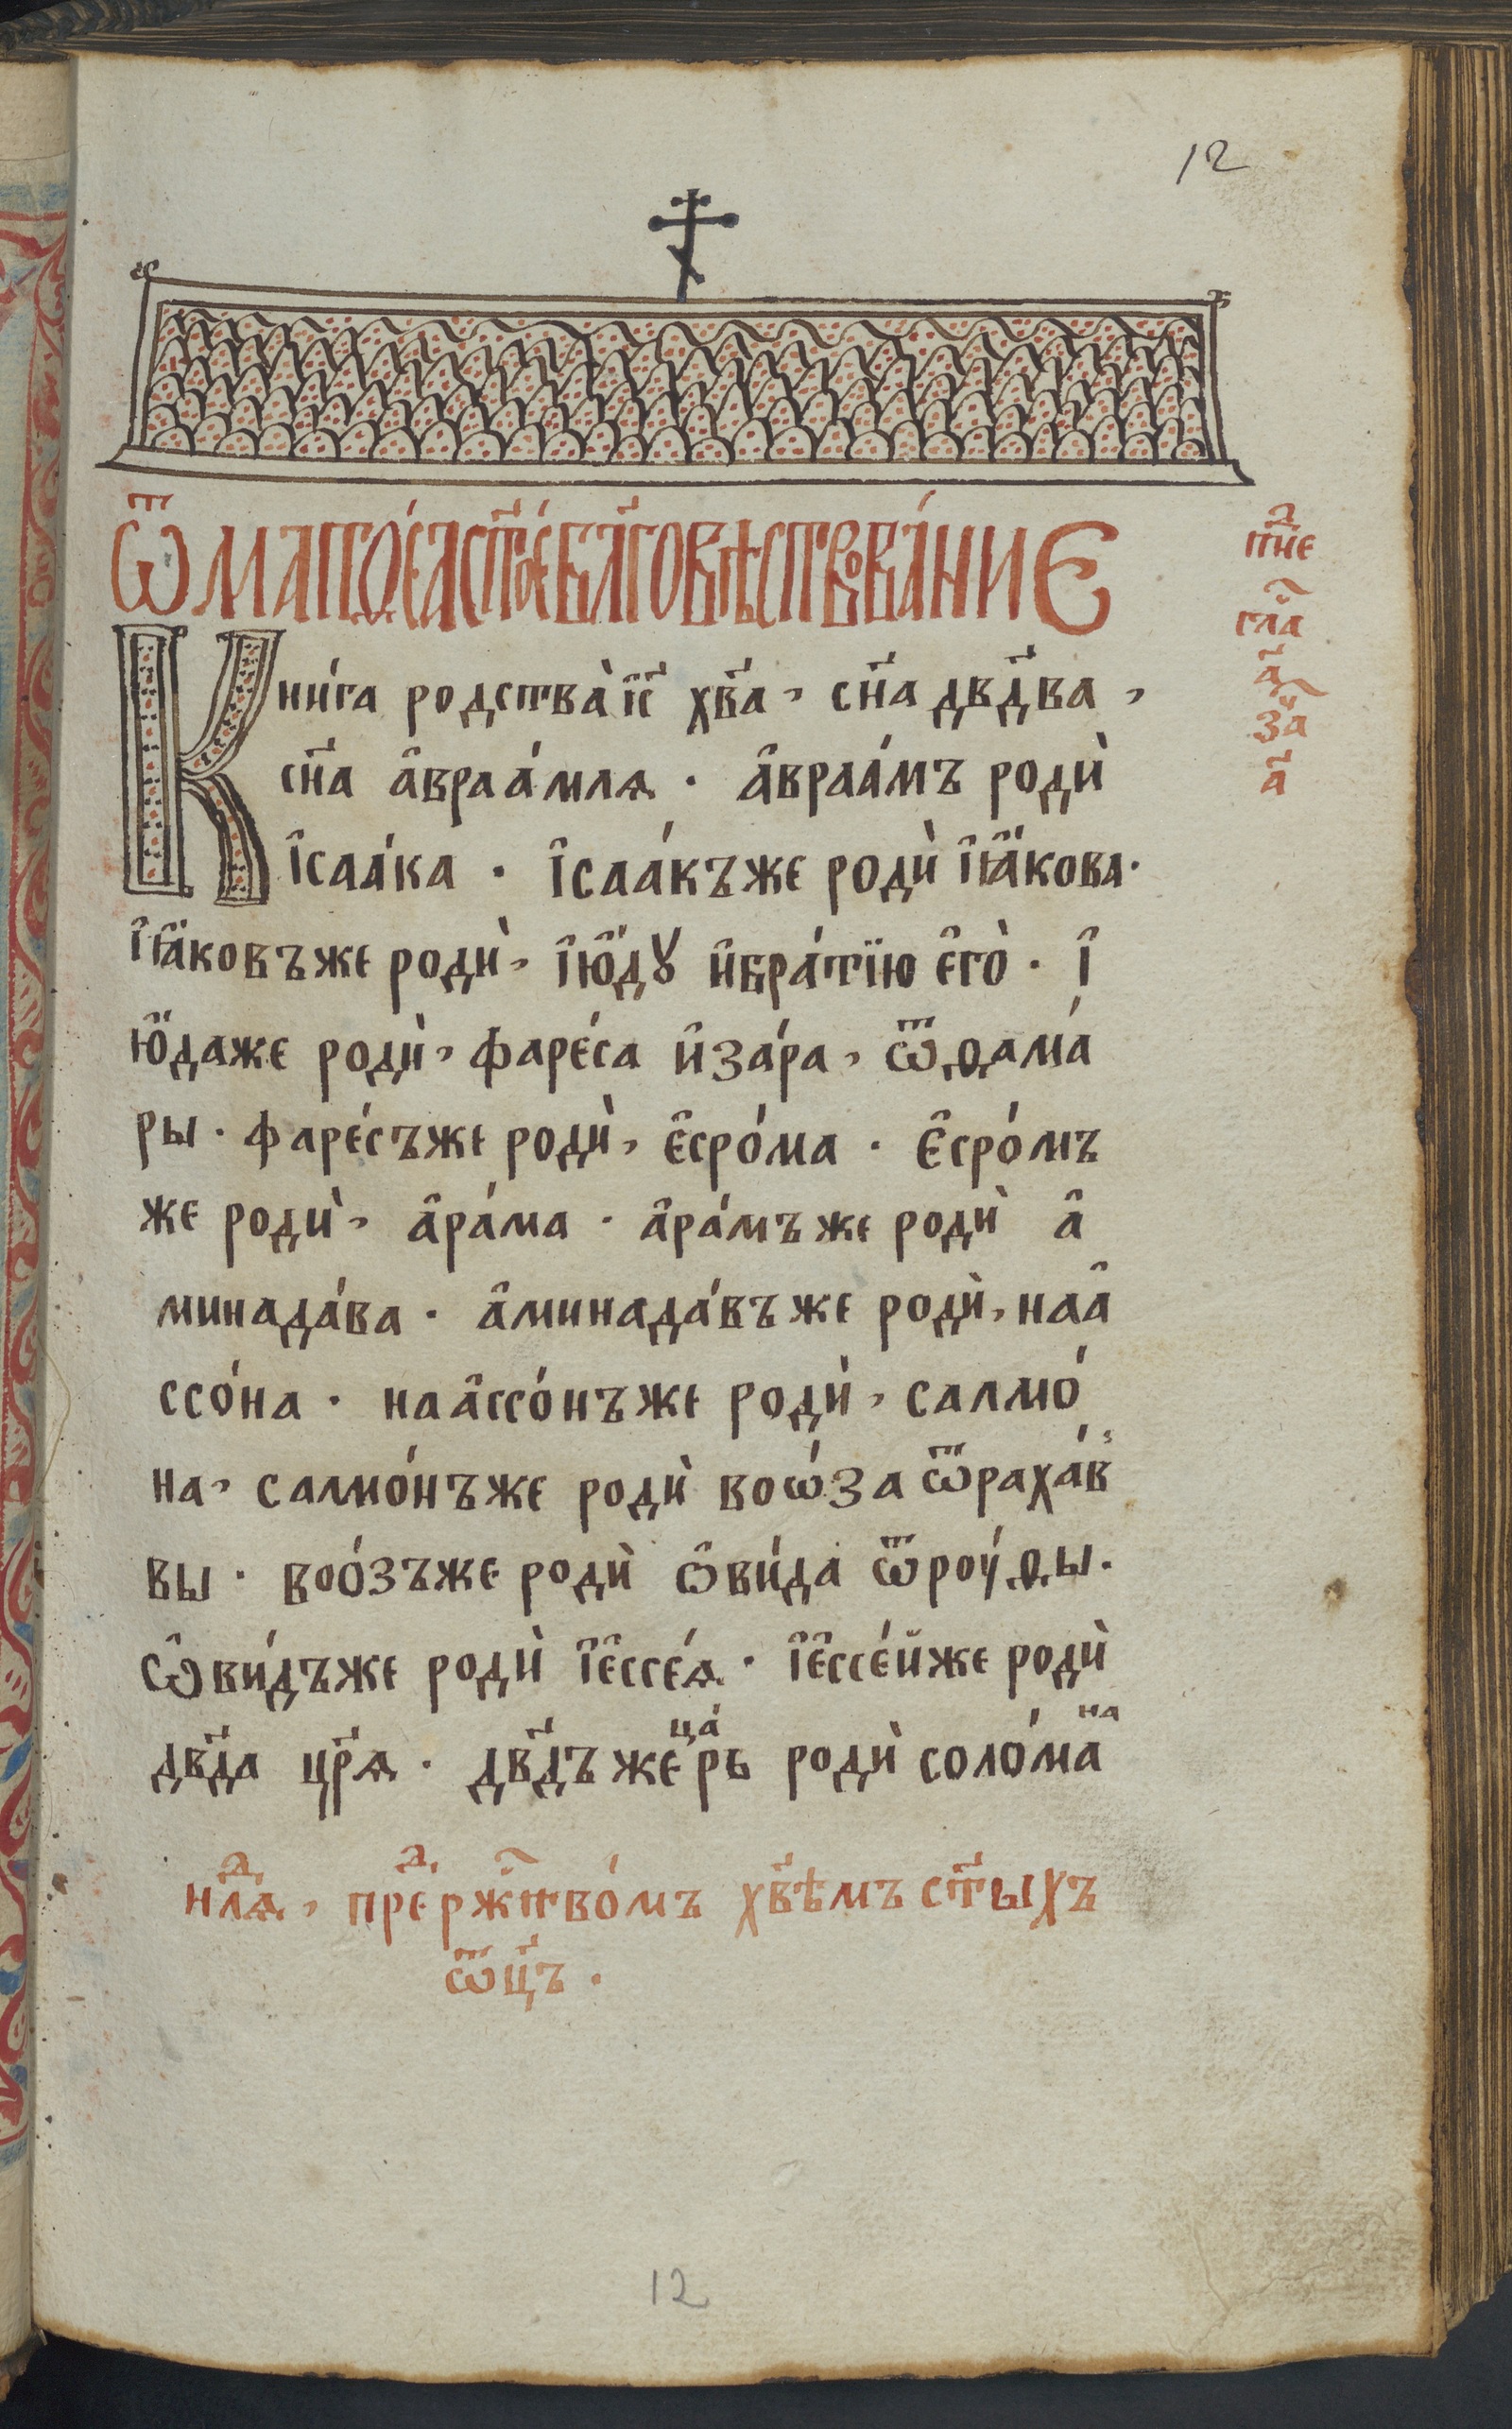 12
Ѿ МАТѲЕ́А СТ҃ОЕ́ БЛ҃ГОВѢСТВОВА́НИЕ
пнⷣе
гла҃
а҃
за҃ч
а҃
Кни́га родства̀ і҆с҃ хв҃а, сн҃а дв҃два,
сн҃а а҆враа́млѧ · а҆враа́мъ родѝ
і҆саа́ка · і҆саа́къже родѝ і҆ꙗ҆́кова·
і҆ꙗ҆́ковъже родѝ, і҆ю҆́дꙋ и҆бра́тїю є҆го̀ · і҆
ю҆́даже родѝ, фаре́са и҆за́ра, ѿѳама́
ры · фаре́съже родѝ, є҆сро́ма · є҆сро́мъ
же родѝ, а҆ра́ма · а҆ра́мъже родѝ а҆
минада́ва · а҆минада́въже родѝ, наа҆
ссо́на · наа҆ссо́нъже родѝ, салмо́
на, салмо́нъже родѝ воѡ́за ѿраха́в
вы · воо́зъже родѝ ѻ҆ви́да ѿроу́ѳы·
ѡ҆ви́дъже родѝ і҆є҆ссе́ѧ · і҆є҆ссе́йже родѝ
дв҃да цр҃ѧ · дв҃дъже ца́рь родѝ соло́мана
нлⷣѧ, преⷣ ржⷭ҇тво́мъ хв҃ѣмъ ст҃ыхъ
ѿц҃ъ ·
12